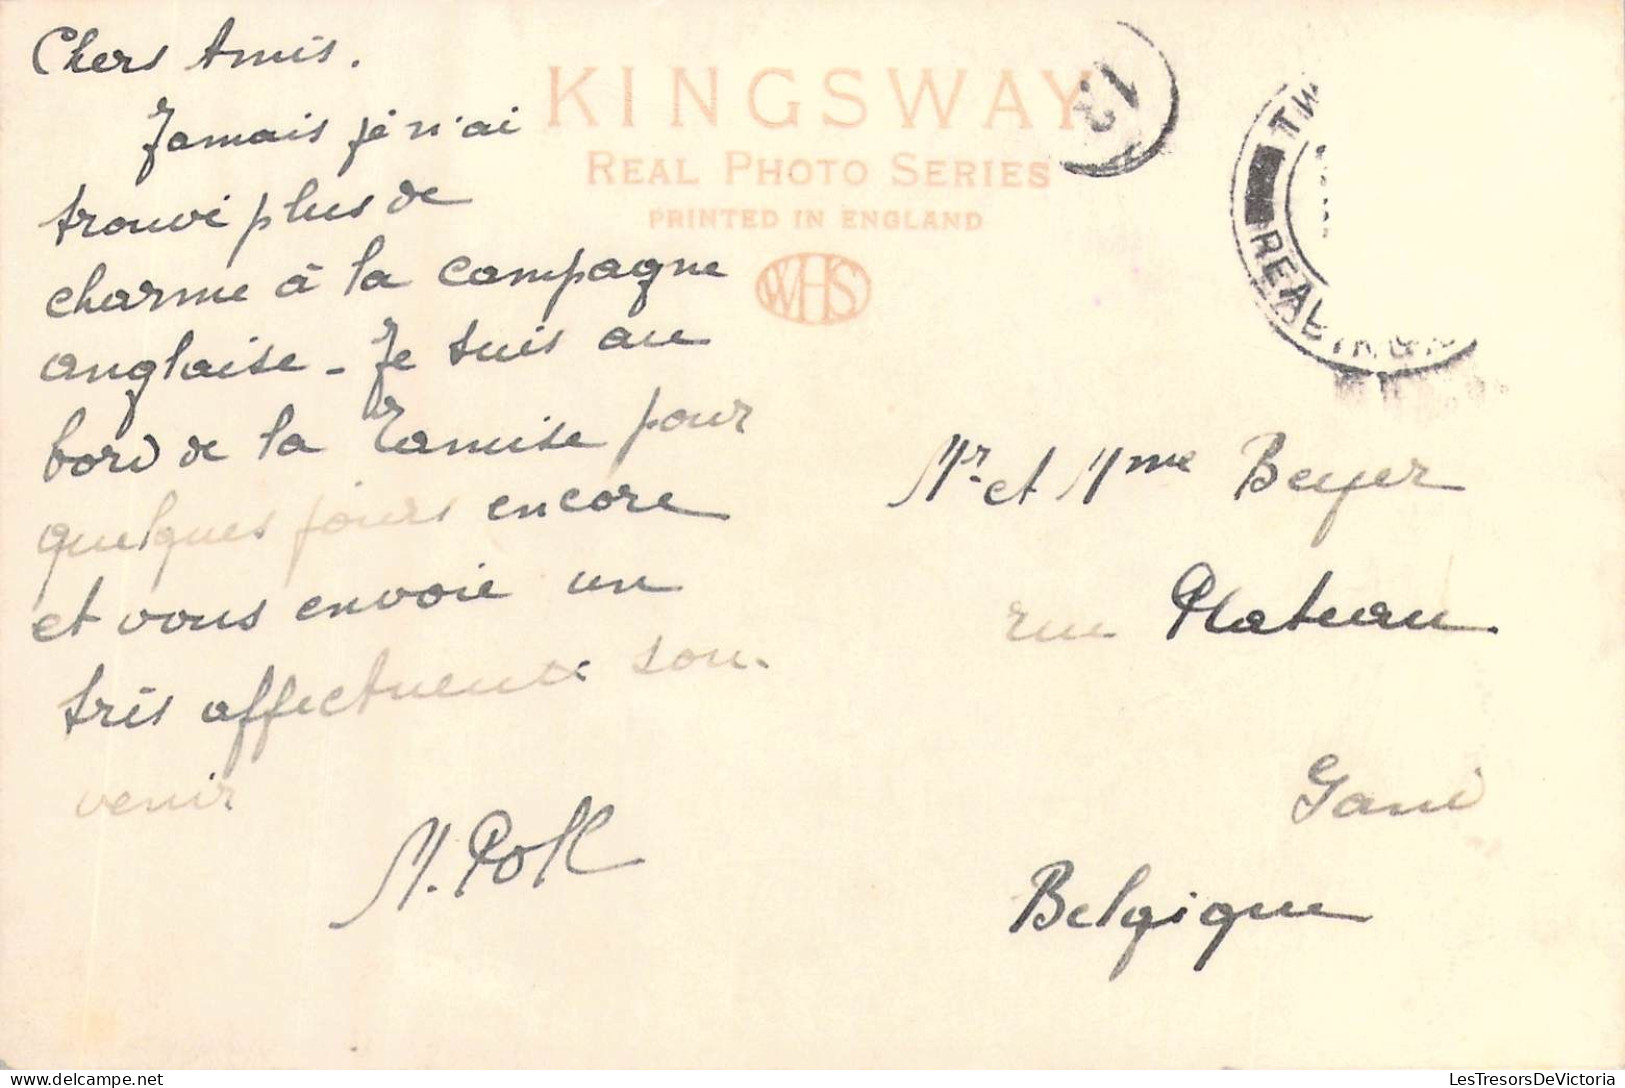 Chers Amis.
Jamais je n'ai
trouvé plus de
charme à la campagne
anglaise - Je suis au
bord de la Tamise pour
quelques jours encore
et vous envoie un
très affectueux sou-
venir
M. Poll
KINGSWAY
REAL PHOTO SERIES
PRINTED IN ENGLAND
WHS
12
REA
Mr et Mme Beyer
rue Plateau
Gand
Belgique
LesTresorsDeVictoria
delcampe.net